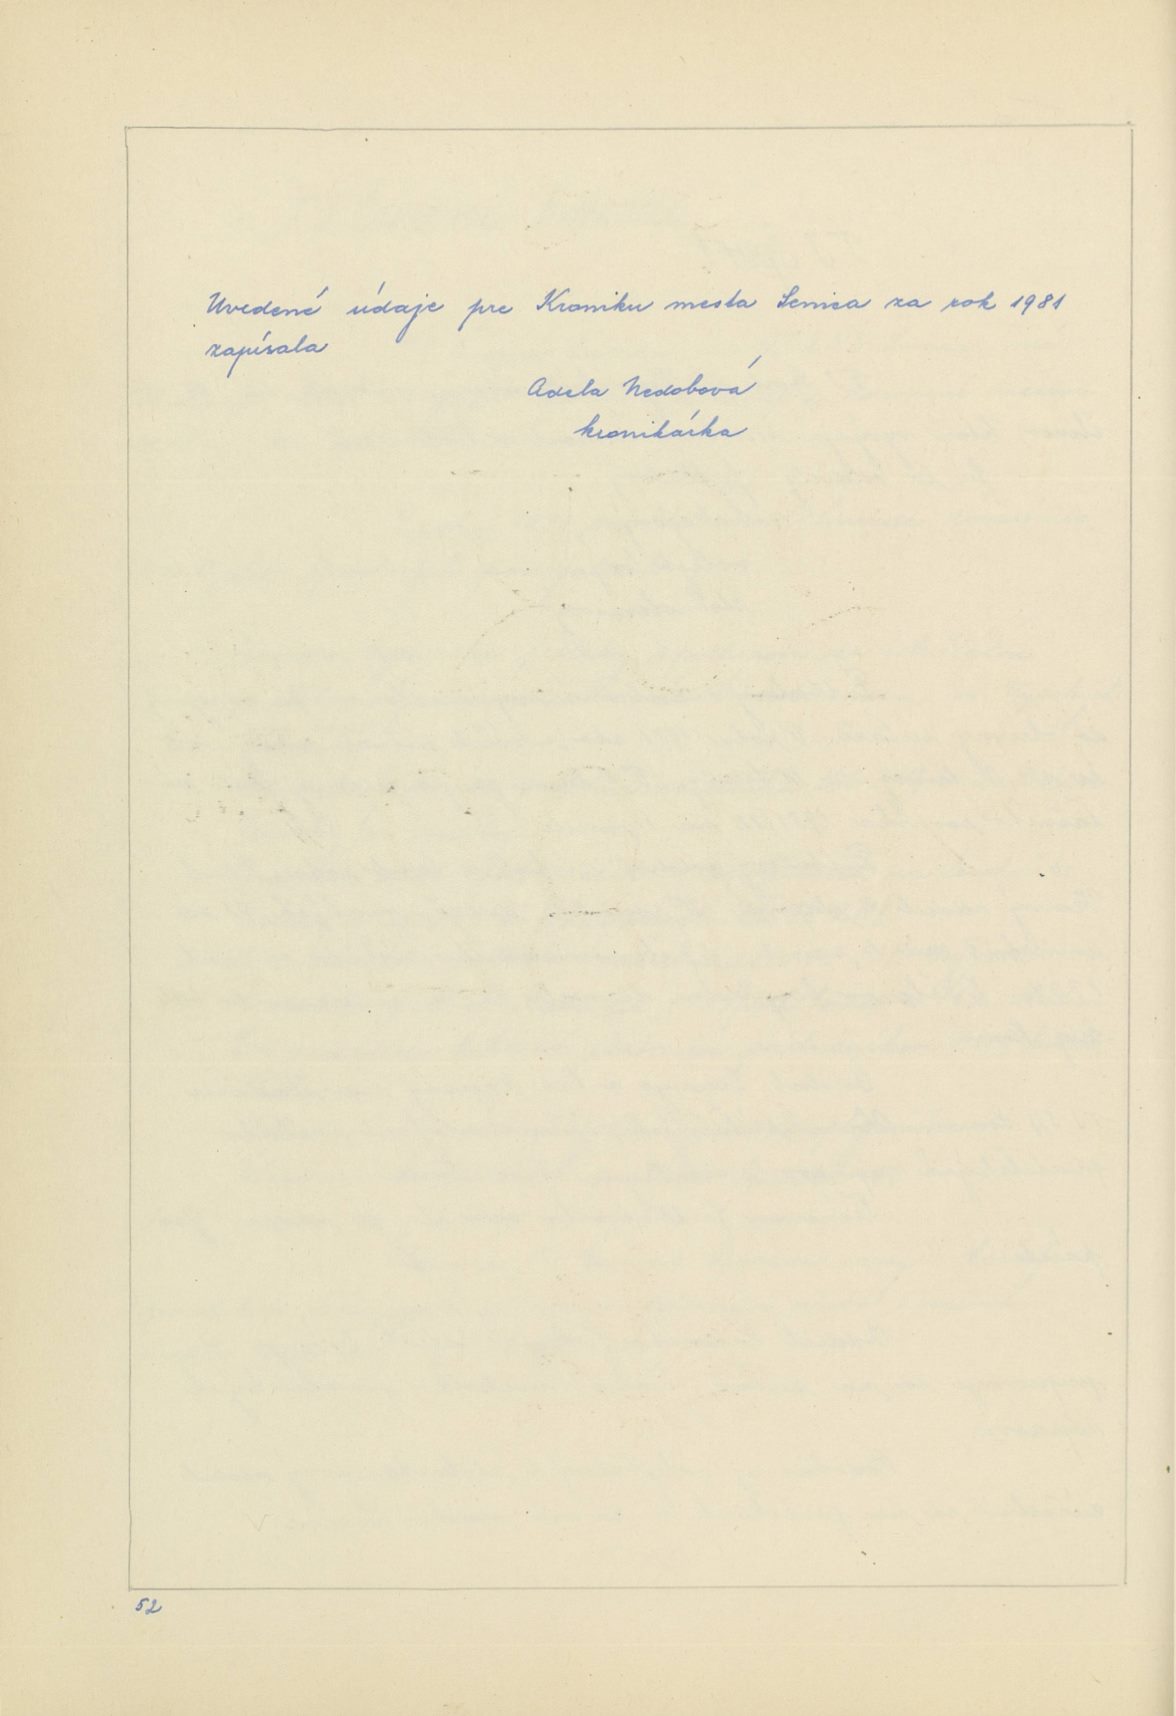 Uvedené údaje pre Kroniku mesta Senica za rok 1981
zapísala
Adela Nedobová
kronikárka
52